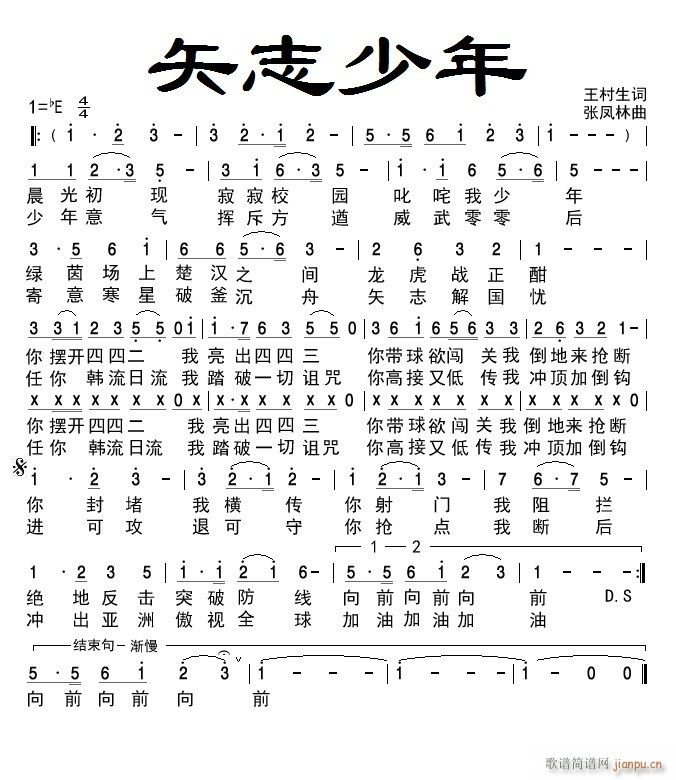 矢志少年
1=♭E 4/4
王村生词
张凤林曲
‖:( 1 · 2 3 - | 3 2 · 1 2 - | 5 · 5 6 1 2 3 · 2 | 1 - - - ) |
1 1 2 · 3 5 - | 3 · 3 2 1 6 - | 1 · 1 6 1 5 · 6 | 5 - - - |
晨光初现 寂寂校园 叱咤我少年
少年意气 挥斥方遒 威武零零后
3 · 5 6 1 | 5 · 6 5 · 6 3 - | 2 6 2 3 | 1 - - - |
绿茵场上楚汉之间 龙虎战正酣
寄意寒星破釜沉舟 矢志解国忧
你摆开四四二 我亮出四四三 你带球欲闯关我倒地来抢断
任你韩流日流我踏破一切诅咒 你高接又低传我冲顶加倒钩
x x x x x x x 0 x | x · x x x x x x 0 | x x x x x x x x | x x x x x 0 |
你摆开四四二 我亮出四四三 你带球欲闯关我倒地来抢断
任你韩流日流我踏破一切诅咒 你高接又低传我冲顶加倒钩
1 · 2 3 - | 3 2 · 1 2 - | 1 2 · 1 3 - | 7 6 · 7 5 - |
你封堵我横传你射门我阻拦
进可攻退可守你抢点我断后
1 2
1 · 2 3 5 | 1 · 1 2 1 6 - | 5 · 5 6 1 2 3 | 1 - - - :‖
绝地反击突破防线向前向前向前 D.S
冲出亚洲傲视全球加油加油加油
结束句-渐慢
5 · 5 6 1 2 3 | 1 - - - | 1 - - - | 1 - 0 0 ‖
向前向前向前
歌谱简谱网
jianpu.cn